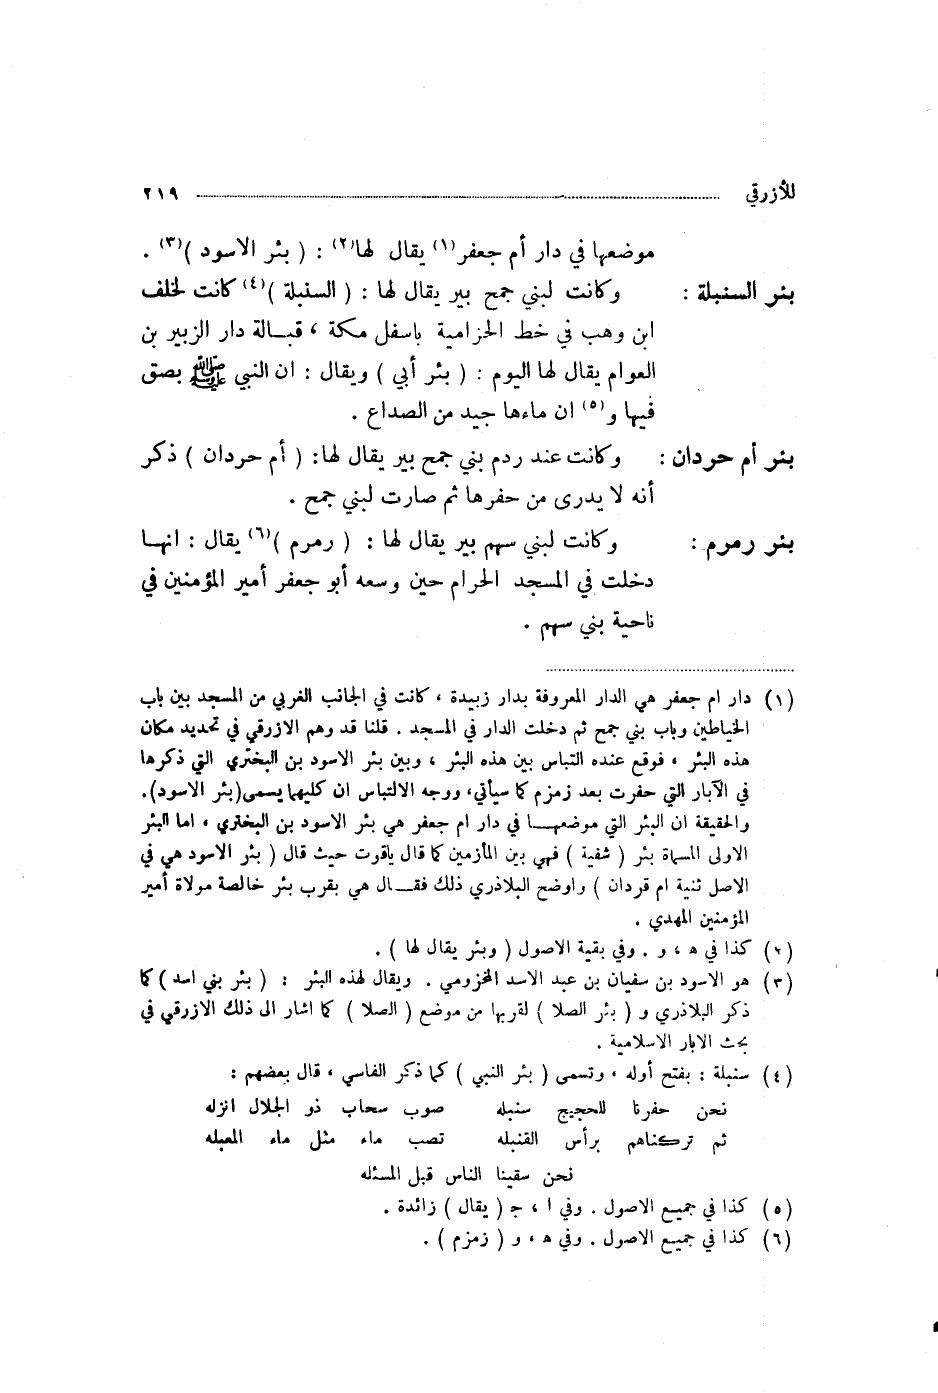 للأزرقي ........ ٢١٩
موضعها في دار أم جعفر(١) يقال لها(٢) : ( بئر الاسود )(٣) .
بئر السنبلة : وكانت لبني جمح بير يقال لها : ( السنبلة )(٤) كانت لخلف
ابن وهب في خط الحزامية باسفل مكة ، قبـالة دار الزبير بن
العوام يقال لها اليوم : ( بئر أبي ) ويقال : ان النبي ﷺ بصق
فيها و(٥) ان ماءها جيد من الصداع .
بئر أم حردان : وكانت عند ردم بني جمح بير يقال لها: ( أم حردان ) ذكر
أنه لا يدرى من حفرها ثم صارت لبني جمح .
بئر رمرم : وكانت لبني سهم بير يقال لها : ( رمرم )(٦) يقال : انهـا
دخلت في المسجد الحرام حين وسعه أبو جعفر أمير المؤمنين في
ناحية بني سهم .
(١) دار ام جعفر هي الدار المعروفة بدار زبيدة ، كانت في الجانب الغربي من المسجد بين باب
الخياطين وباب بني جمح ثم دخلت الدار في المسجد . قلنا قد وهم الازرقي في تحديد مكان
هذه البئر ، فوقع عنده التباس بين هذه البئر ، وبين بئر الاسود بن البختري التي ذكرها
في الآبار التي حفرت بعد زمزم كما سيأتي، ووجه الالتباس ان كليهما يسمى(بئر الاسود).
والحقيقة ان البئر التي موضعهـا في دار ام جعفر هي بئر الاسود بن البختري ، اما البئر
الاولى المسماة بئر ( شفية ) فهي بين المأزمين كما قال ياقوت حيث قال ( بئر الاسود هي في
الاصل ثنية ام قردان ) واوضح البلاذري ذلك فقـال هي بقرب بئر خالصة مولاة أمير
المؤمنين المهدي .
(٢) كذا في ه ، و . وفي بقية الاصول ( وبئر يقال لها ) .
(٣) هو الاسود بن سفيان بن عبد الاسد المخزومي . ويقال لهذه البئر : ( بئر بني اسد ) كما
ذكر البلاذري و ( بئر الصلا ) لقربها من موضع ( الصلا ) كما اشار الى ذلك الازرقي في
بحث الابار الاسلامية .
(٤) سنبلة : بفتح أوله ، وتسمى ( بئر النبي ) كما ذكر الفاسي ، قال بعضهم :
نحن حفرنا للحجيج سنبله صوب سحاب ذو الجلال انزله
ثم تركناهم برأس القنبله تصب ماء مثل ماء المعبله
نحن سقينا الناس قبل المسئله
(٥) كذا في جميع الاصول . وفي ا ، ج ( يقال ) زائدة .
(٦) كذا في جميع الاصول . وفي ه ، و ( زمزم ) .